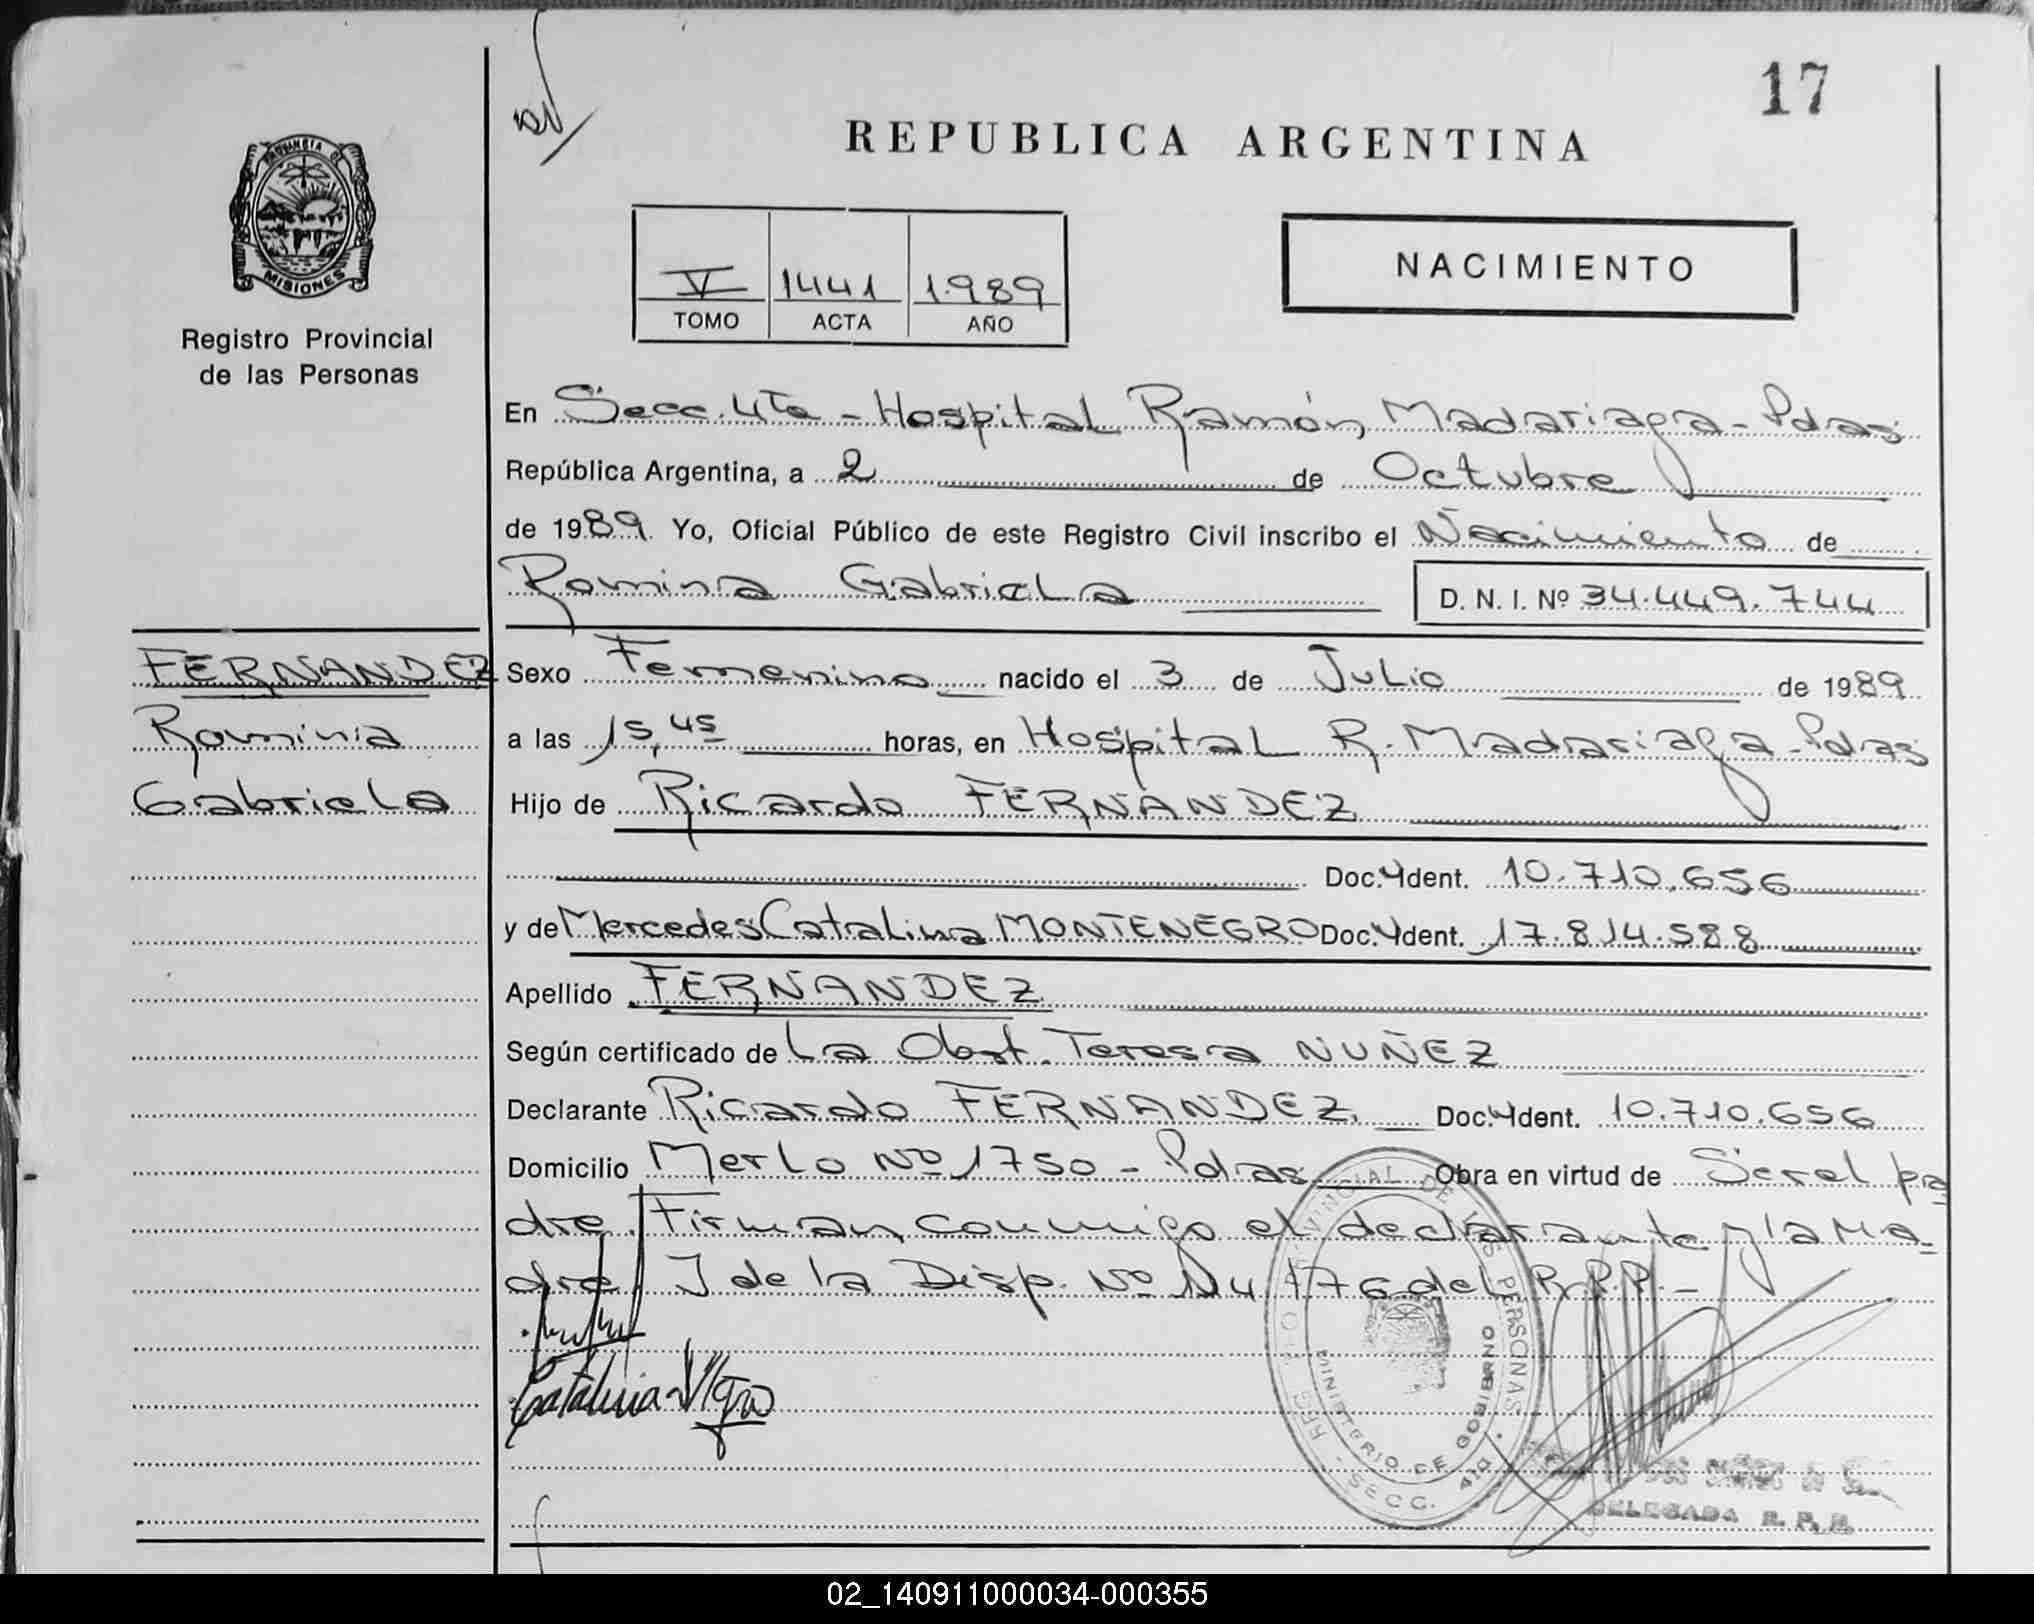 17
REPUBLICA ARGENTINA
PROVINCIA DE
MISIONES
Registro Provincial
de las Personas
V 1441 1.989
TOMO ACTA AÑO
NACIMIENTO
En Secc. 4ta - Hospital Ramón Madariaga - Pdas
República Argentina, a 2 de Octubre
de 1989. Yo, Oficial Público de este Registro Civil inscribo el Nacimiento de
Romina Gabriela D. N. I. Nº 34.449.744
FERNANDEZ
Rominia
Gabriela
Sexo Femenino nacido el 3 de Julio de 1989
a las 15,45 horas, en Hospital R. Madariaga - Pdas
Hijo de Ricardo FERNANDEZ
Doc. Ydent. 10.710.656
y de Mercedes Catalina MONTENEGRO Doc. Ydent. 17.814.588
Apellido FERNANDEZ
Según certificado de La Obst. Teresa NUÑEZ
Declarante Ricardo FERNANDEZ. Doc. Ydent. 10.710.656
Domicilio Merlo Nº 1750 - Pdas Obra en virtud de Ser el pa
dre. Firman conmigo el declarante y la Ma-
dre. J de la Disp. Nº 114/76 del R.P.P.-
REG. PROVINCIAL DE LAS PERSONAS
MINISTERIO DE GOBIERNO
SECC.
DELEGADA R. P. P.
02_140911000034-000355